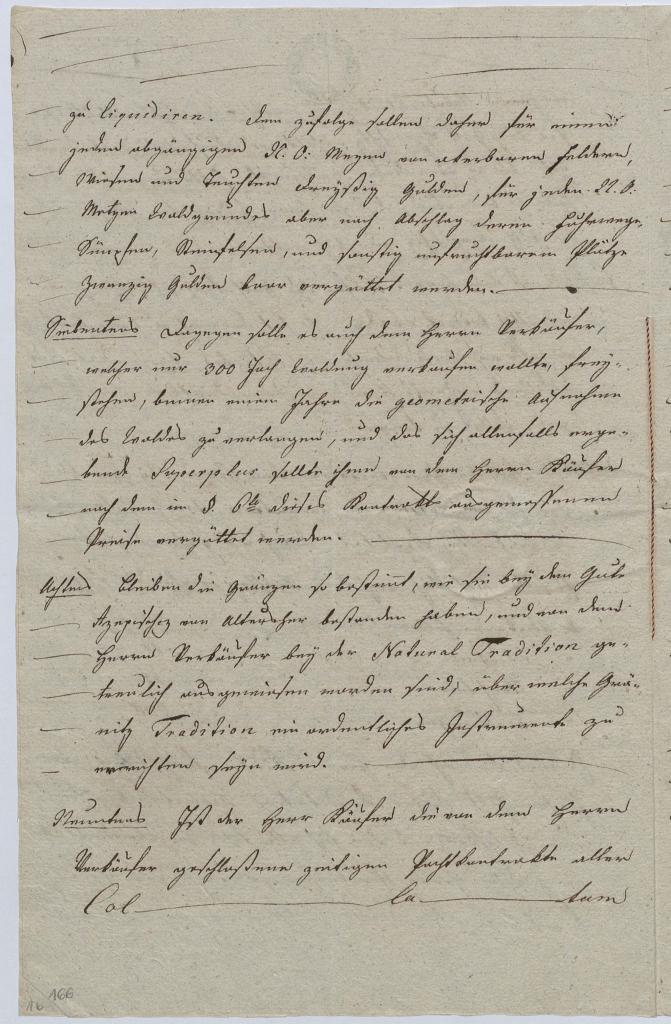 zu liquidiren. Dem zufolge sollen daher für einen
jeden abgängigen N. Ö: Metzen von akerbaren Feldern,
Wiesen und Teuchten dreyßig Gulden, für jeden N. Ö:
Metzen Waldgrundes aber nach Abschlag deren Fuhrwege,
Sümpfen, Steinfelsen, und sonstig unfruchtbaren Plätze
Zwanzig Gulden baar vergüttet werden.
Siebentens Dagegen solle es auch dem Herrn Verkäufer,
welcher nur 300 Joch Waldung verkaufen wollte, frey-
stehen, binnen einem Jahre die geometrische Aufnahme
des Waldes zu verlangen, und das sich allenfalls erge-
bende Superplus sollte ihm von dem Herrn Käufer
nach dem im §. 6te dieses Kontrakts ausgemessenen
Preise vergüttet werden.
Achtens bleiben die Gränzen so bestimt, wie sie bey dem Gute
von Altersher bestanden haben, und von dem
Herrn Verkäufer bey der Natural Tradition ge-
treulich ausgewiesen worden sind; über welche Grä-
nitz Tradition ein ordentliches Instrument zu
errichten seyn wird.
Neuntens Ist der Herr Käufer die von dem Herrn
Verkäufer geschloßene zeitigen Pachtkontrakte aller
Col la tum
166